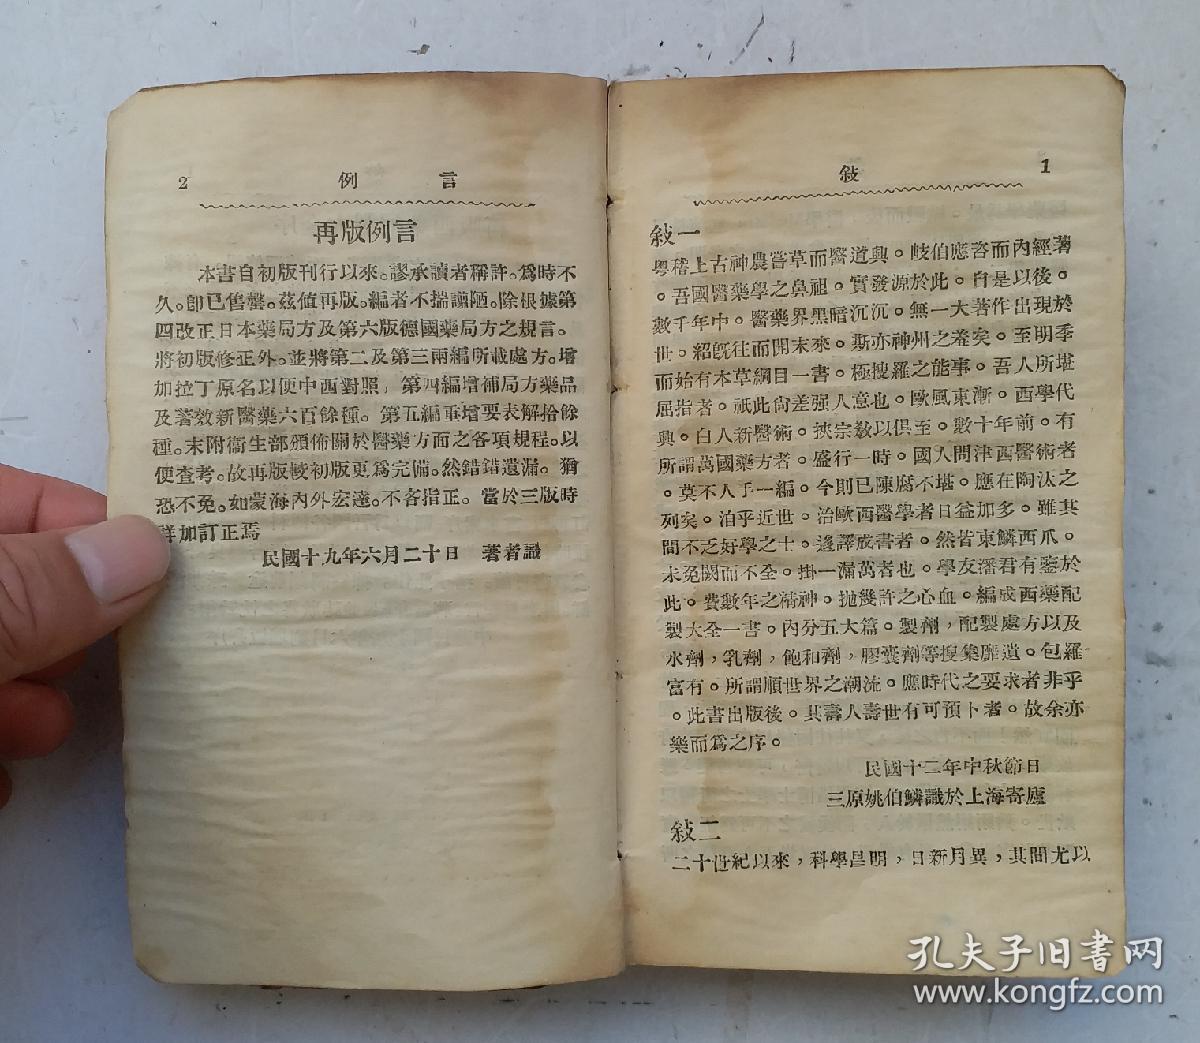 2 例 言
再版例言
本書自初版刊行以來。謬承讀者稱許。爲時不
久。卽已售罄。茲值再版。編者不揣譾陋。除根據第
四改正日本藥局方及第六版德國藥局方之規言。
將初版修正外。並將第二及第三兩編所載處方。增
加拉丁原名以便中西對照」第四編增補局方藥品
及著效新醫藥六百餘種。第五編重增要表解拾餘
種。末附衞生部頒佈關於醫藥方面之各項規程。以
便查考。故再版較初版更爲完備。然錯錯遺漏。猶
恐不免。如蒙海內外宏達。不吝指正。當於三版時
詳加訂正焉
民國十九年六月二十日 著者識
敍 1
敍一
粤稽上古神農嘗草而醫道興。岐伯應答而內經著
。吾國醫藥學之鼻祖。實發源於此。自是以後。
數千年中。醫藥界黑暗沉沉。無一大著作出現於
世。紹旣往而開未來。斯亦神州之羞矣。至明季
而始有本草綱目一書。極搜羅之能事。吾人所堪
屈指者。祇此尙差强人意也。歐風東漸。西學代
興。白人新醫術。挾宗敎以俱至。數十年前。有
所謂萬國藥方者。盛行一時。國人問津西醫術者
。莫不人手一編。今則已陳腐不堪。應在陶汰之
列矣。洎乎近世。治歐西醫學者日益加多。雖其
間不乏好學之士。迻譯成書者。然皆東鱗西爪。
未免闕而不全。掛一漏萬者也。學友潘君有鑒於
此。費數年之精神。拋幾許之心血。編成西藥配
製大全一書。內分五大篇。製劑，配製處方以及
水劑，乳劑，飽和劑，膠囊劑等搜集靡遺。包羅
富有。所謂順世界之潮流。應時代之要求者非乎
。此書出版後。其壽人壽世有可預卜者。故余亦
樂而爲之序。
民國十二年中秋節日
三原姚伯鱗識於上海寄廬
敍二
二十世紀以來，科學昌明，日新月異，其間尤以
孔夫子旧書网
www.kongfz.com